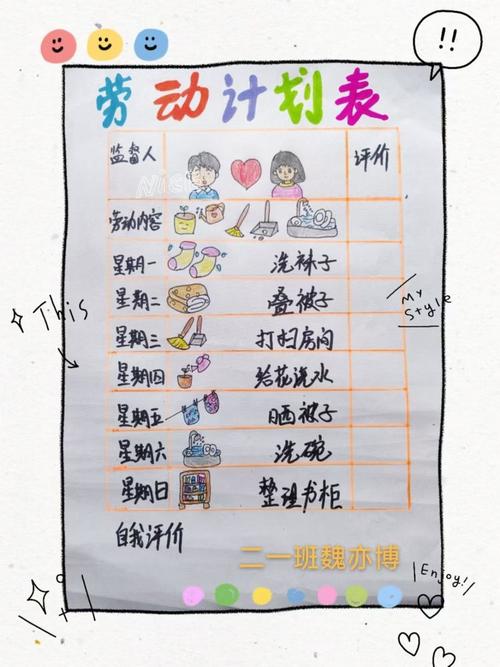 !!
劳动计划表
监督人 评价
劳动内容
星期一 洗袜子
星期二 叠被子
This
My
Style
星期三 打扫房间
星期四 给花浇水
星期五 晒被子
星期六 洗碗
星期日 整理书柜
自我评价
二一班魏亦博
Enjoy!